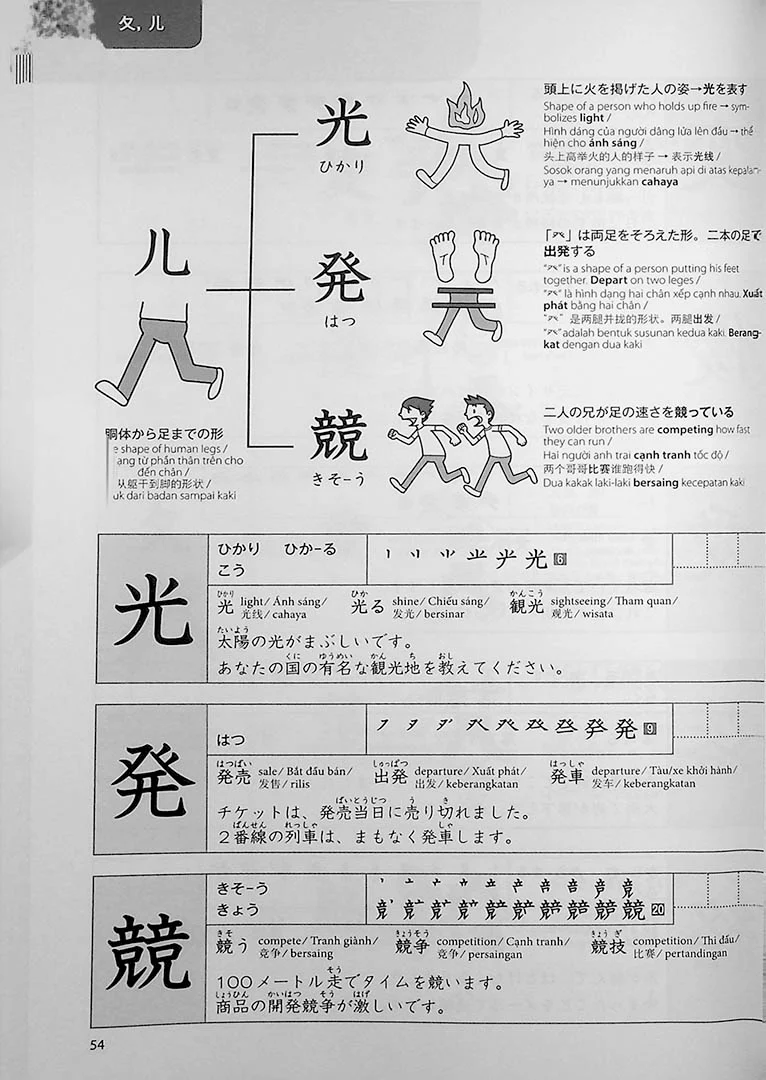 夂, 儿
儿
胴体から足までの形
e shape of human legs /
ang từ phần thân trên cho
đến chân /
从躯干到脚的形状 /
uk dari badan sampai kaki
光
ひかり
頭上に火を掲げた人の姿→光を表す
Shape of a person who holds up fire → sym-
bolizes light /
Hình dáng của người dâng lửa lên đầu → thể
hiện cho ánh sáng /
头上高举火的人的样子 → 表示光线 /
Sosok orang yang menaruh api di atas kepalan-
ya → menunjukkan cahaya
発
はつ
「癶」は両足をそろえた形。二本の足で
出発する
"癶" is a shape of a person putting his feet
together. Depart on two leges /
"癶" là hình dạng hai chân xếp cạnh nhau. Xuất
phát bằng hai chân /
"癶" 是两腿并找的形状。两腿出发 /
"癶" adalah bentuk susunan kedua kaki. Berang-
kat dengan dua kaki
競
きそ-う
二人の兄が足の速さを競っている
Two older brothers are competing how fast
they can run /
Hai người anh trai cạnh tranh tốc độ /
两个哥哥比赛谁跑得快 /
Dua kakak laki-laki bersaing kecepatan kaki
光
ひかり ひか-る
こう
光 6
ひかり ひか かんこう
光 light / Ánh sáng / 光る shine / Chiếu sáng / 観光 sightseeing / Tham quan /
光线 / cahaya 发光 / bersinar 观光 / wisata
たいよう
太陽の光がまぶしいです。
くに ゆうめい かん ち おし
あなたの国の有名な観光地を教えてください。
発
はつ
発 9
はつばい しゅっぱつ はっしゃ
発売 sale / Bắt đầu bán / 出発 departure / Xuất phát / 発車 departure / Tàu/xe khởi hành /
发售 / rilis 出发 / keberangkatan 发车 / keberangkatan
ばいとうじつ う き
チケットは、発売当日に売り切れました。
ばんせん れっしゃ しゃ
２番線の列車は、まもなく発車します。
競
きそ-う
きょう
競 20
きそ きょうそう きょう ぎ
競う compete / Tranh giành / 競争 competition / Cạnh tranh / 競技 competition / Thi đấu /
竞争 / bersaing 竞争 / persaingan 比赛 / pertandingan
そう
100メートル走でタイムを競います。
しょうひん かいはつ そう はげ
商品の開発競争が激しいです。
54